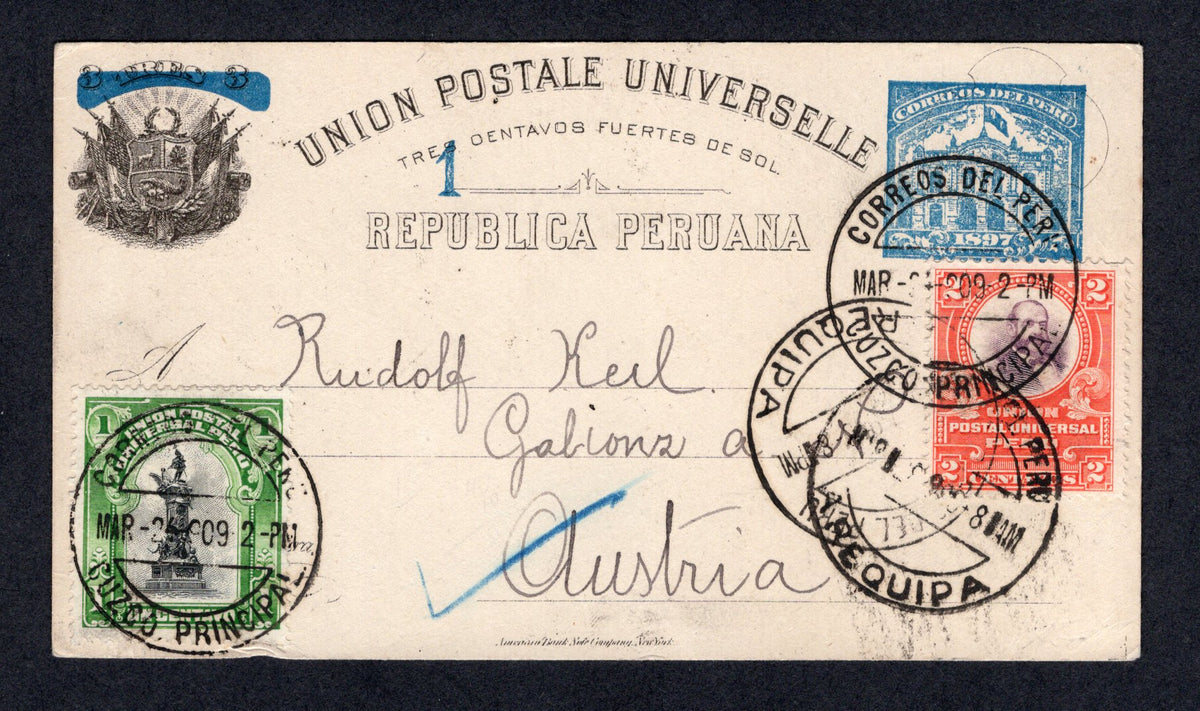 3 TRES 3
UNION POSTALE UNIVERSELLE
TRES CENTAVOS FUERTES DE SOL.
1
REPUBLICA PERUANA
CORREOS DEL PERÚ
1897
CORREOS DEL PERU
MAR -24 909 2 -PM
CUZCO PRINCIPAL
2 2
UNION
POSTAL UNIVERSAL
PERU
2 CENTAVOS 2
AREQUIPA
PERU
8 AM
AREQUIPA
A Rudolf Keil
Gablonz a
Austria
1
UNION POSTAL
UNIVERSAL PERU
MAR -24 909 2 -PM
CUZCO PRINCIPAL
American Bank Note Company, New York.